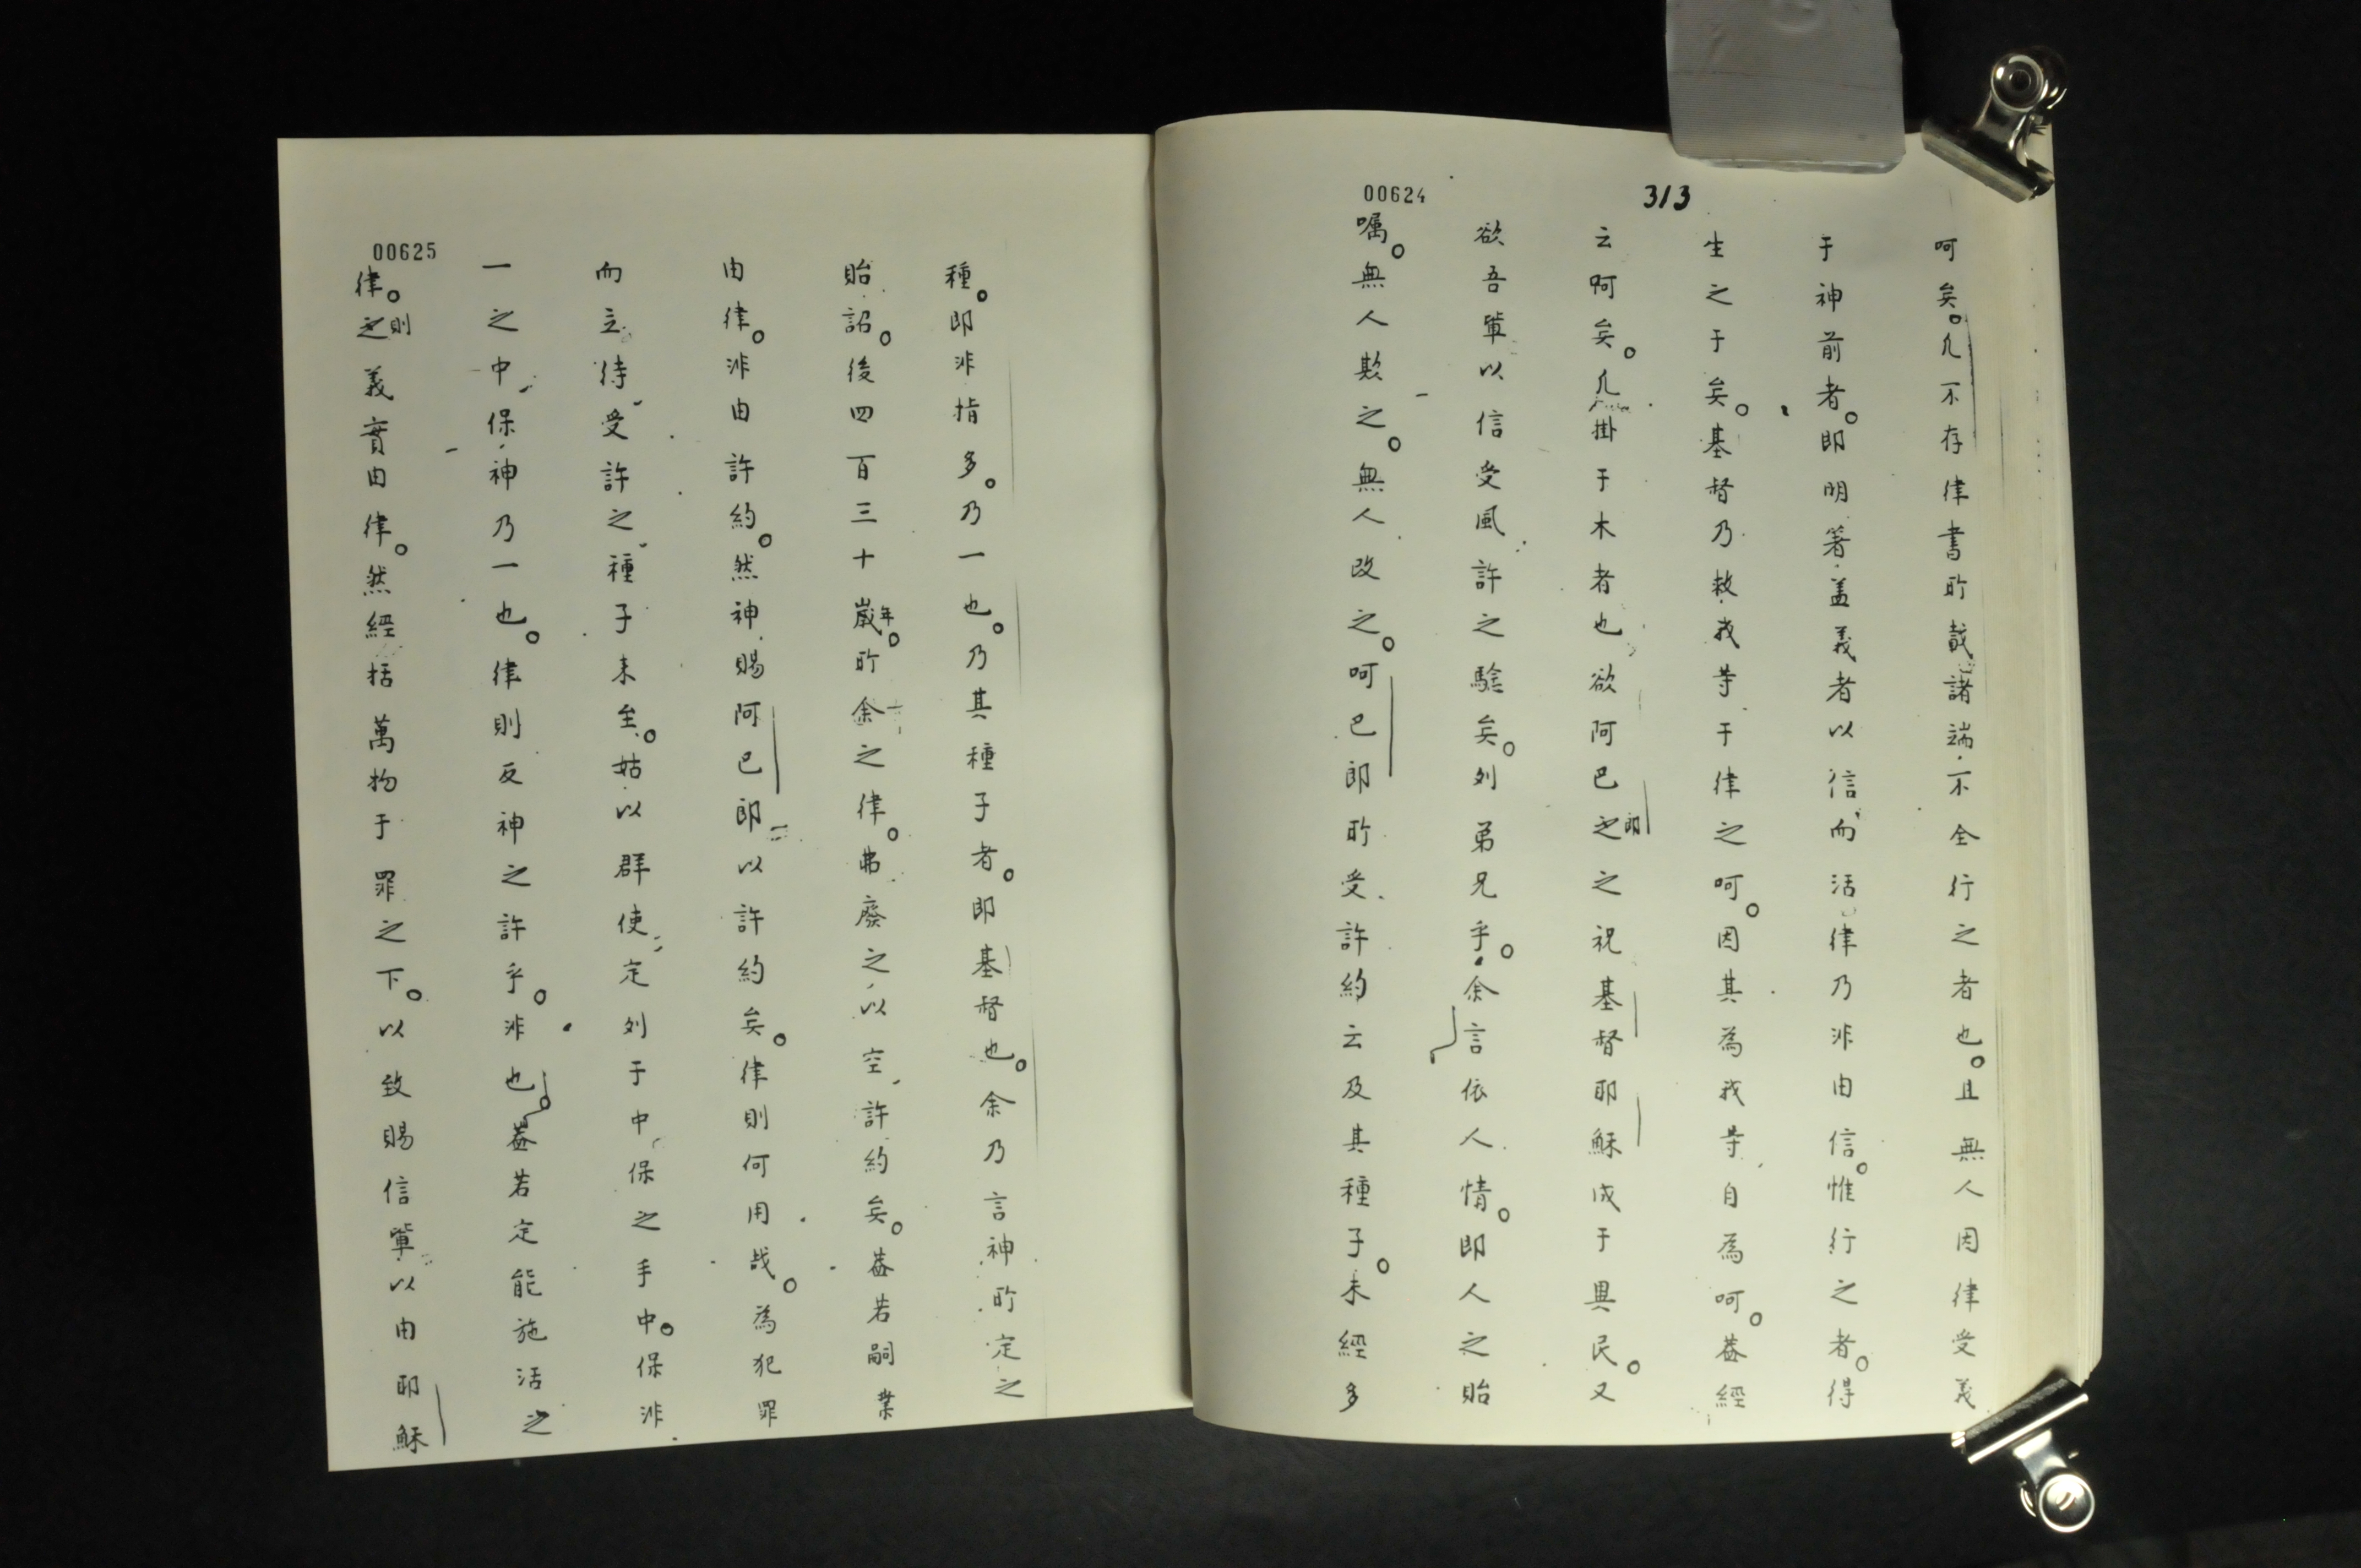 313
00624
呵矣。凢不存律書所哉諸端不全行之者也。且無人因律受義
于神前者。即明著盖義者以信而活律乃非由信。惟行之者。得
生之于矣。基督乃救我等于律之呵。因其為我等自為呵。蓋經
云呵矣。凢掛于木者也欲阿巴郎之之祝基督耶穌成于異民。又
欲吾輩以信受風許之騐矣。列弟兄乎。余言依人情。即人之貽
囑。無人欺之。無人改之。呵巴郎所受許約云及其種子。未經多
00625
種。即非指多。乃一也。乃其種子者。即基督也。余乃言神所定之
貽詔。後四百三十歲年。所余之律。弗廢之以空許約矣。蓋若嗣業
由律。非由許約。然神賜阿巴郎以許約矣。律則何用哉。為犯罪
而立待受許之種子未至。姑以群使定列于中保之手中。保非
一之中保神乃一也。律則反神之許乎。非也。蓋若定能施活之
律。則之義實由律。然經括萬物于罪之下。以致賜信輩以由耶穌